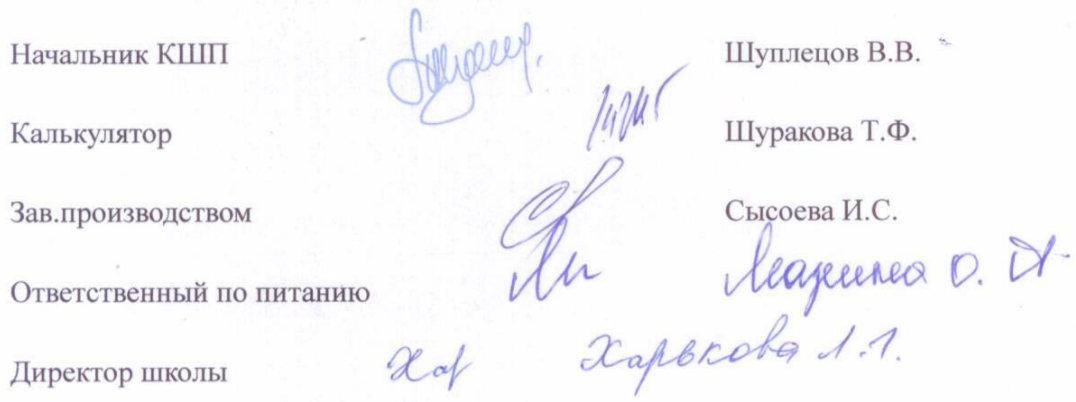 Начальник КШП Шуплецов В.В.
Калькулятор Шуракова Т.Ф.
Зав.производством Сысоева И.С.
Ответственный по питанию О. А.
Директор школы Хар Харькова Л.Л.